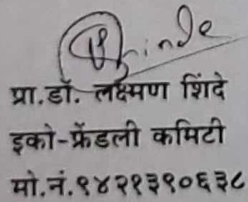 Shinde
प्रा.डॉ. लक्ष्मण शिंदे
इको-फ्रेंडली कमिटी
मो.नं.९४२१३९०६३८